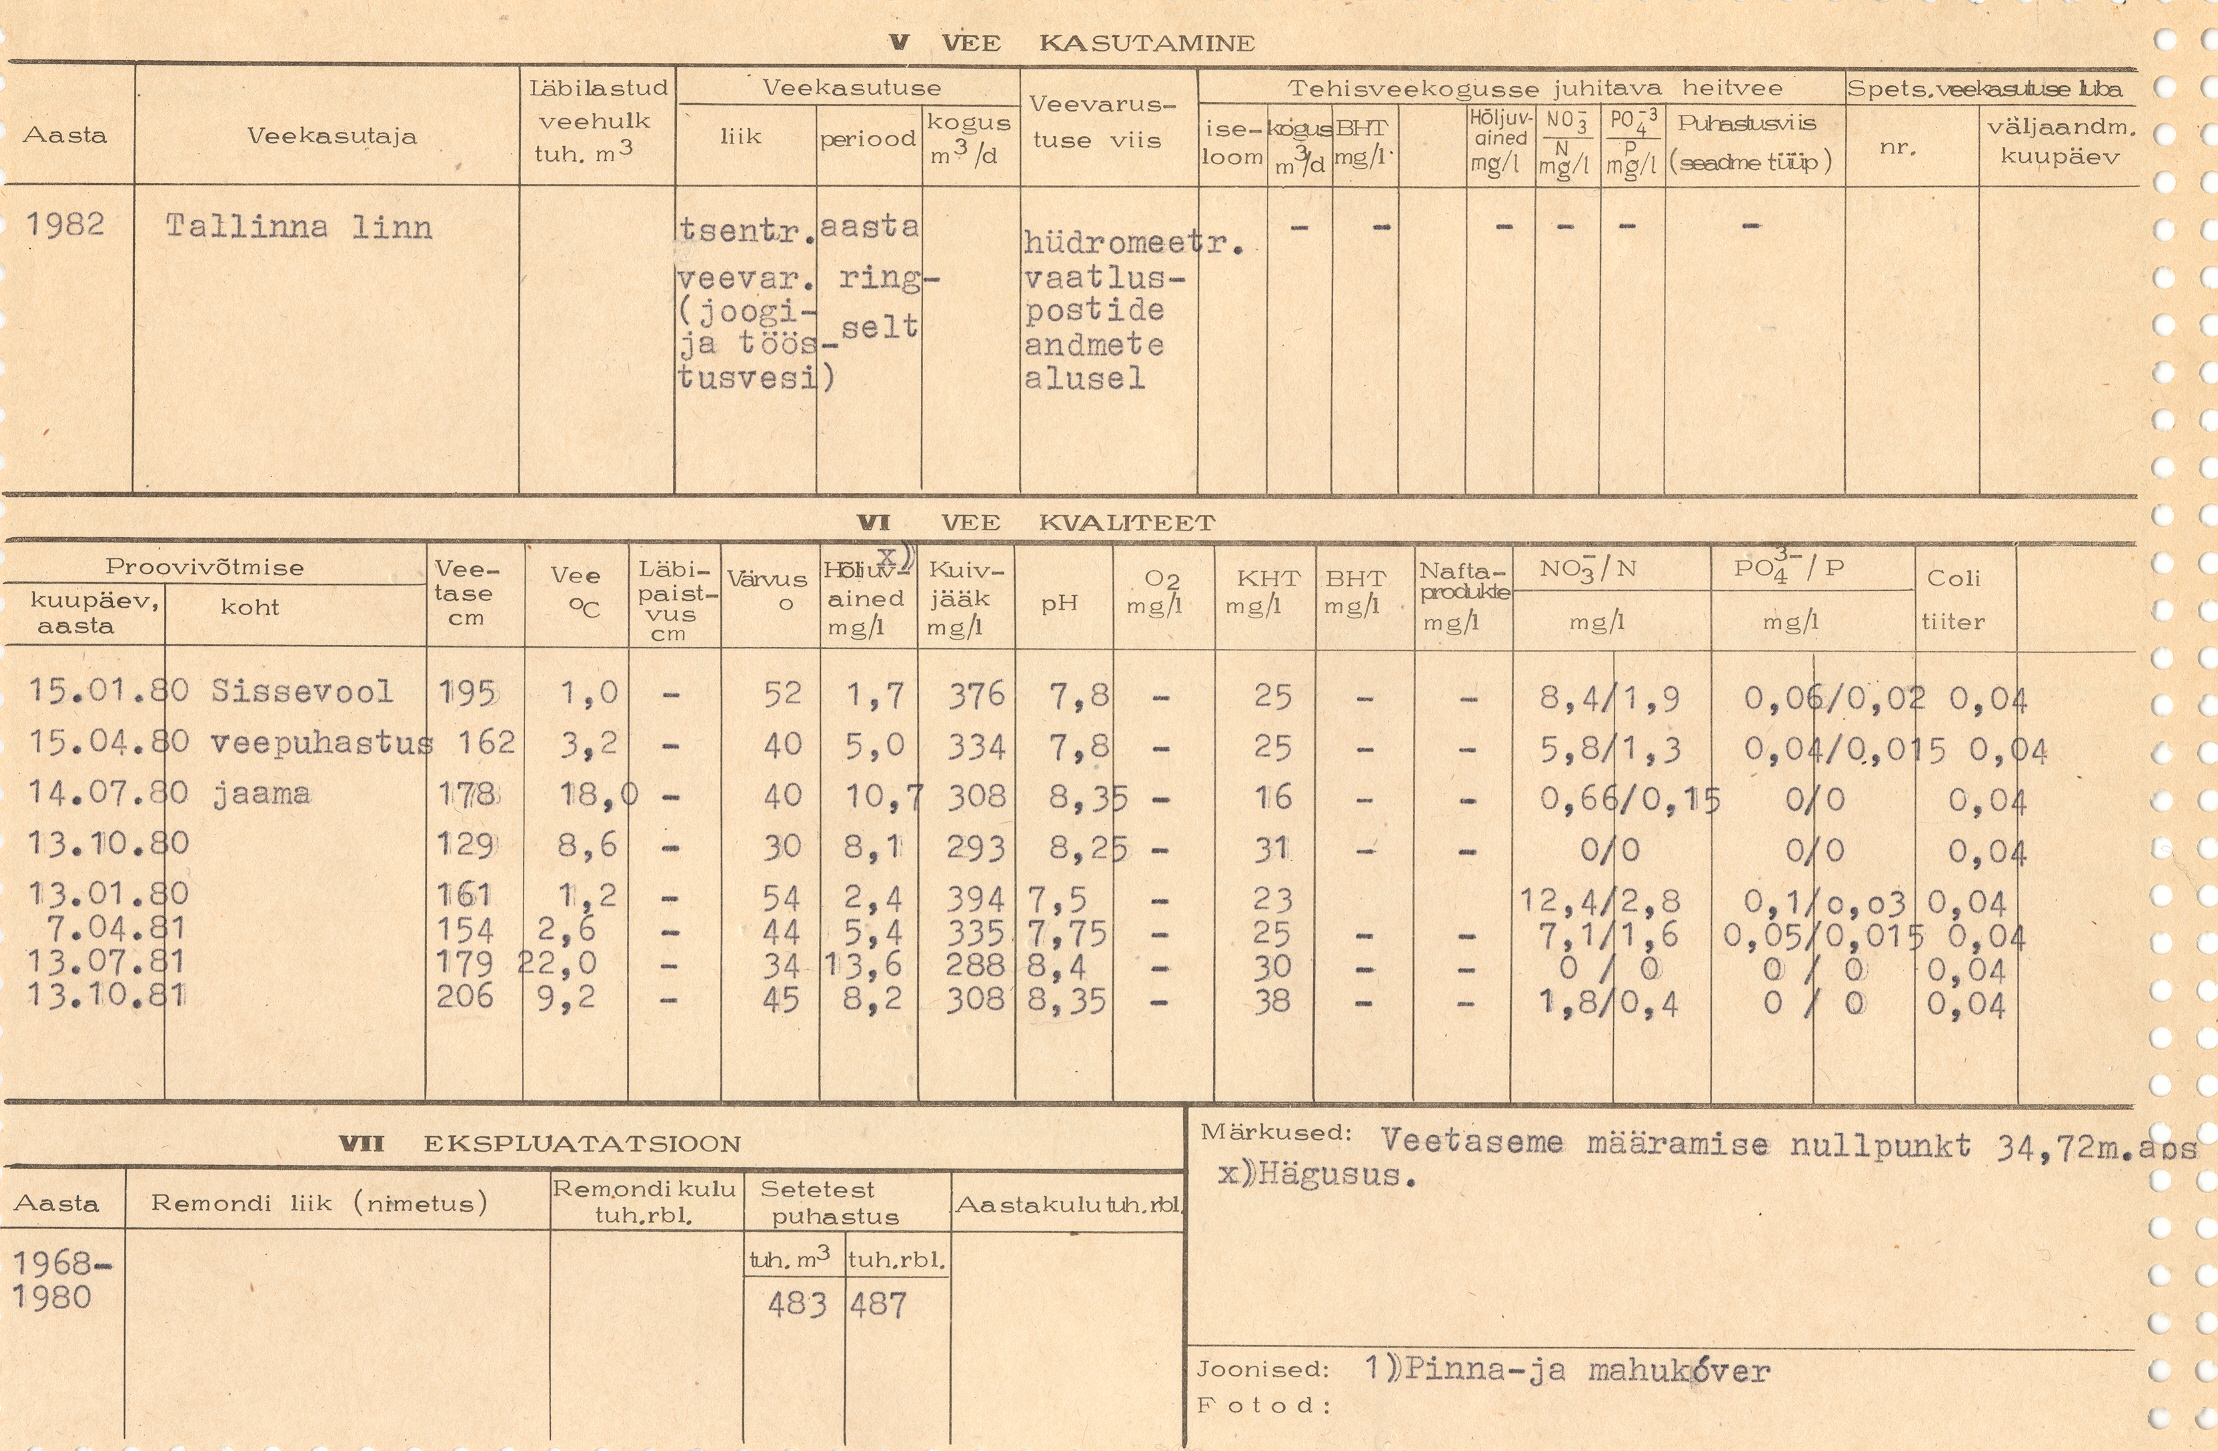 V VEE KASUTAMINE
Aasta Veekasutaja Läbilastud veehulk tuh. m³ Veekasutuse Veevarus- tuse viis Tehisveekogusse juhitava heitvee Spets. veekasutuse luba
liik periood kogus m³/d ise- loom kogus m³/d BHT mg/l Hõljuv- ained mg/l NO₃⁻/N mg/l PO₄⁻³/P mg/l Puhastusviis (seadme tüüp) nr. väljaandm. kuupäev
1982 Tallinna linn tsentr. aasta hüdromeetr. - - - - - -
veevar. ring- vaatlus-
(joogi- selt postide
ja töös- andmete
tusvesi) alusel
VI VEE KVALITEET
Proovivõtmise Vee- tase cm Vee °C Läbi- paist- vus cm Värvus o Hõljuv- ained mg/l x) Kuiv- jääk mg/l pH O₂ mg/l KHT mg/l BHT mg/l Nafta- produkte mg/l NO₃⁻/N mg/l PO₄³⁻/P mg/l Coli tiiter
kuupäev, aasta koht
15.01.80 Sissevool 195 1,0 - 52 1,7 376 7,8 - 25 - - 8,4/1,9 0,06/0,02 0,04
15.04.80 veepuhastus 162 3,2 - 40 5,0 334 7,8 - 25 - - 5,8/1,3 0,04/0,015 0,04
14.07.80 jaama 178 18,0 - 40 10,7 308 8,35 - 16 - - 0,66/0,15 0/0 0,04
13.10.80 129 8,6 - 30 8,1 293 8,25 - 31 - - 0/0 0/0 0,04
13.01.80 161 1,2 - 54 2,4 394 7,5 - 23 12,4/2,8 0,1/0,03 0,04
7.04.81 154 2,6 - 44 5,4 335 7,75 - 25 - - 7,1/1,6 0,05/0,015 0,04
13.07.81 179 22,0 - 34 13,6 288 8,4 - 30 - - 0 / 0 0 / 0 0,04
13.10.81 206 9,2 - 45 8,2 308 8,35 - 38 - - 1,8/0,4 0 / 0 0,04
VII EKSPLUATATSIOON
Aasta Remondi liik (nimetus) Remondi kulu tuh.rbl. Setetest puhastus Aastakulu tuh.rbl.
tuh. m³ tuh.rbl.
1968-
1980 483 487
Märkused: Veetaseme määramise nullpunkt 34,72m.aps
x)Hägusus.
Joonised: 1)Pinna-ja mahukóver
Fotod: